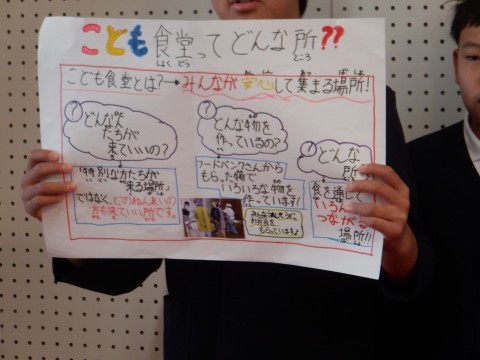 こども食堂ってどんな所??
しょくどう
ところ
こども食堂とは?→みんなが安心して集まる場所!
?
どんな
たちが
来ていいの?
「特別な方たちが
来る場所」
ではなく、どのねんれいの
方も来ていい所です。
?
どんな物を
作っているの?
フードバンクさんから
もらった物で
いろいろな物を
作っています!
?
どんな
所?
食を通して
いろんな
つながる
場所!!